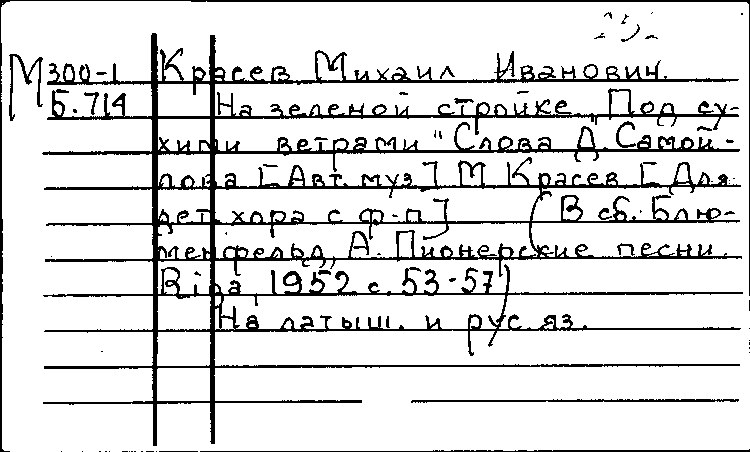 М 300-1 Красев Михаил Иванович.
Б. 714 На зеленой стройке. „Под су-
хими ветрами" Слова Д. Самой-
лова [Авт. муз.] М Красев [Для
дет. хора с ф-п] (В сб. Блю-
менфельд, А. Пионерские песни.
Riga, 1952 с. 53-57)
На латыш. и рус. яз.